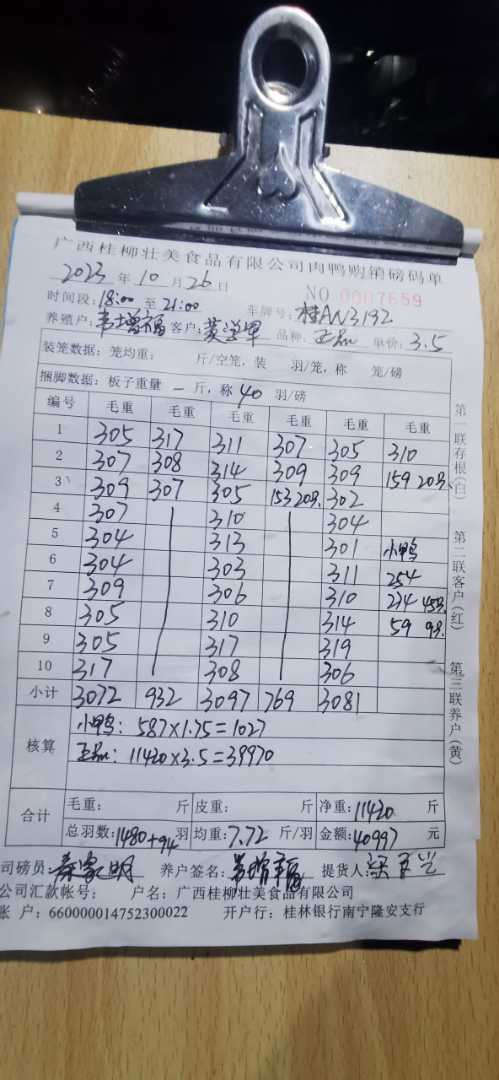 广西桂柳壮美食品有限公司肉鸭购销磅码单
2023 年 10 月 26 日 NO 0007659
时间段: 18:00 至 21:00 车牌号: 桂AN3192
养殖户: 韦增福 客户: 品种: 正品 单价: 3.5
装笼数据: 笼均重: 斤/空笼, 装 羽/笼, 称 笼/磅
捆脚数据: 板子重量 一 斤, 称 40 羽/磅
编号 毛重 毛重 毛重 毛重 毛重 毛重
1 305 317 311 307 305 310
2 307 308 314 309 309 159 20羽
3 309 307 305 153 20羽 302
4 307 310 304
5 304 313 301 小鸭
6 304 303 311 254
7 309 306 310 234 45羽
8 305 310 314 59 9羽
9 305 317 319
10 317 308 306
小计 3072 932 3097 769 3081
核算 小鸭: 587×1.75=1027
正品: 11420×3.5=39970
合计 毛重: 斤 皮重: 斤 净重: 11420 斤
总羽数: 1480+94 羽 均重: 7.72 斤/羽 金额: 40997 元
司磅员: 秦家明 养户签名: 韦增福 提货人:
公司汇款帐号: 户名: 广西桂柳壮美食品有限公司
帐 户: 660000014752300022 开户行: 桂林银行南宁隆安支行
第一联存根(白)
第二联客户(红)
第三联养户(黄)